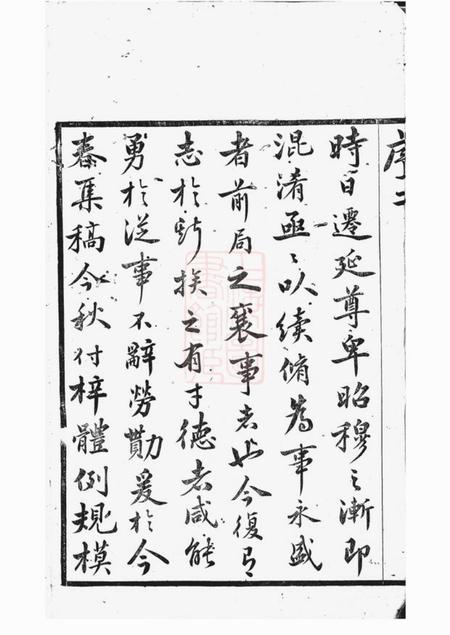 序二
時日遷延尊卑昭穆之漸即
混淆亟亟以續脩為事永盛
者前局之襄事者也今復有
志於斯挨之有才德者咸能
勇於從事不辭勞勩爰於今
春集稿今秋付梓體例規模